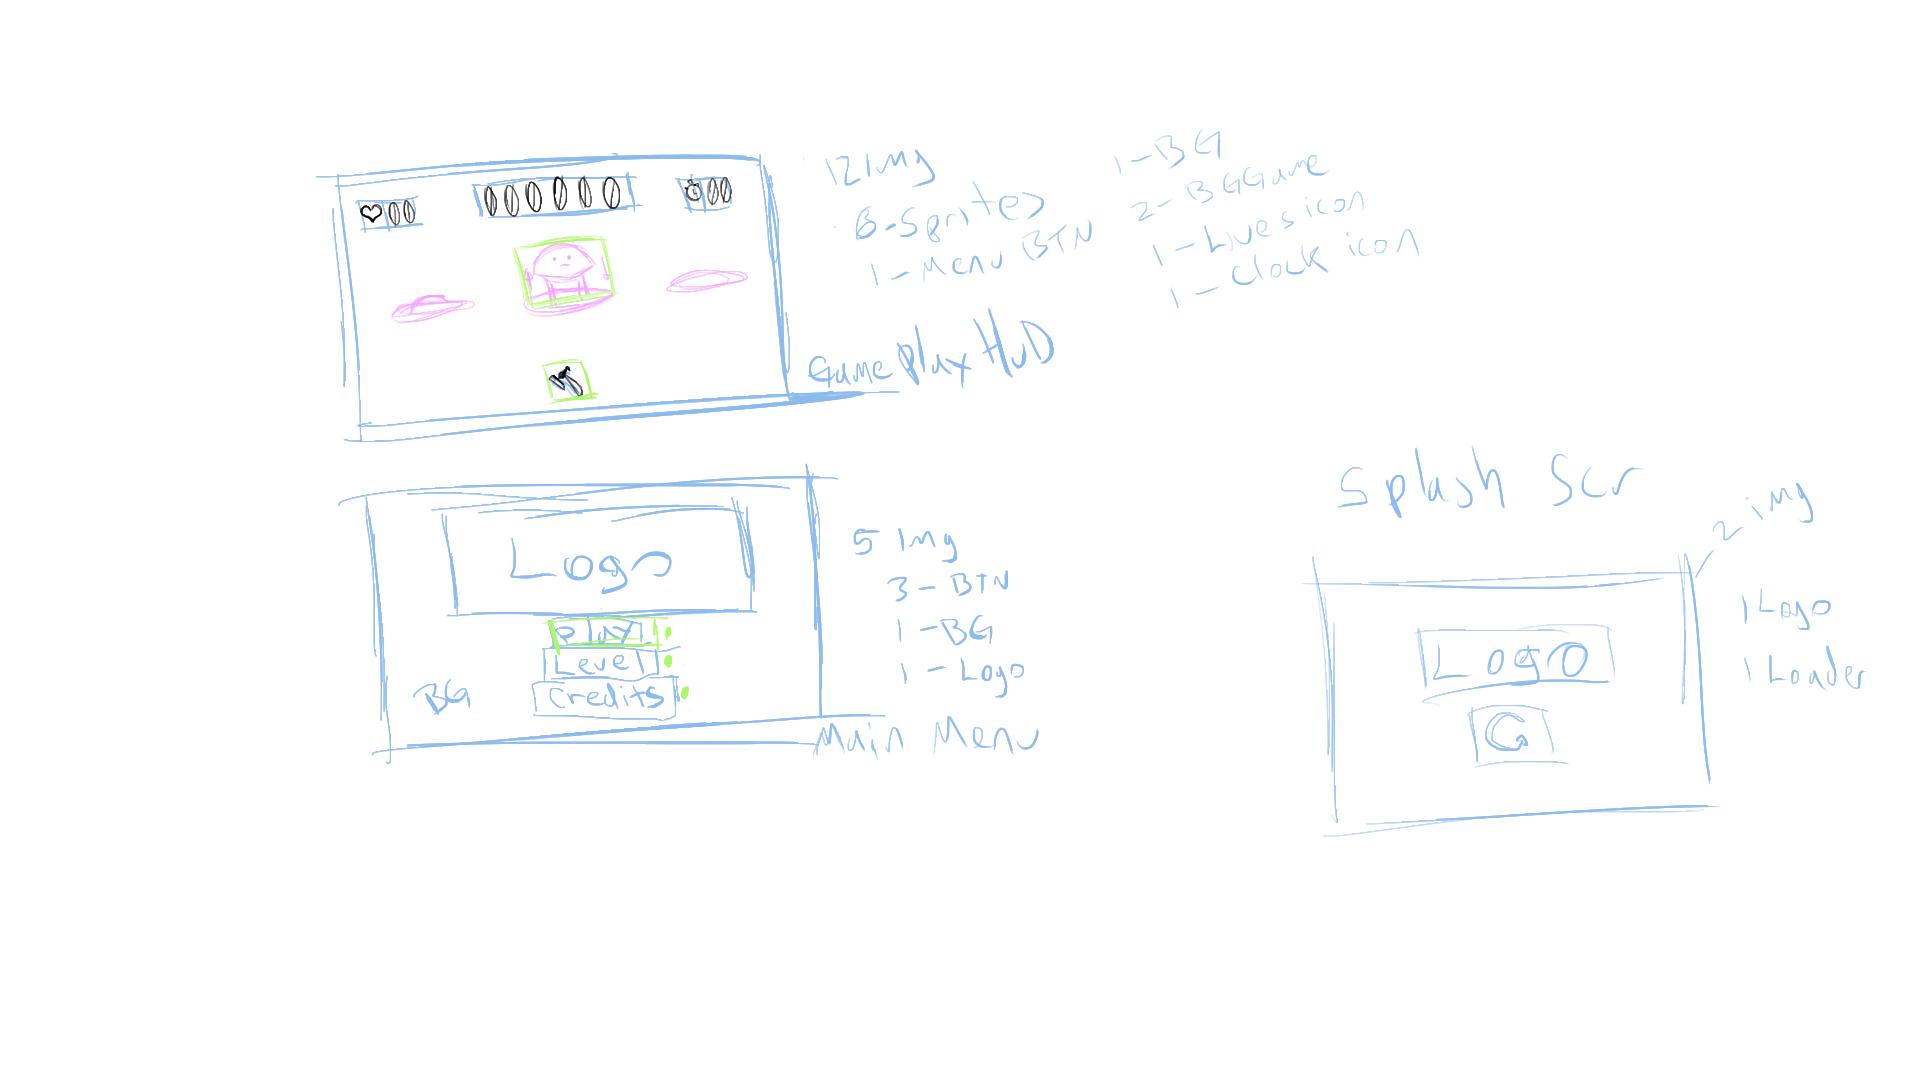 00
000000
00
12 Img
6-Sprites
1-Menu BTN
1-BG
2-BGGame
1-Lives icon
1-Clock icon
GamePlay HuD
Logo
Play
Level
Credits
BG
5 Img
3-BTN
1-BG
1-Logo
Main Menu
Splash Scr
2 img
LOGO
1 Logo
1 Loader